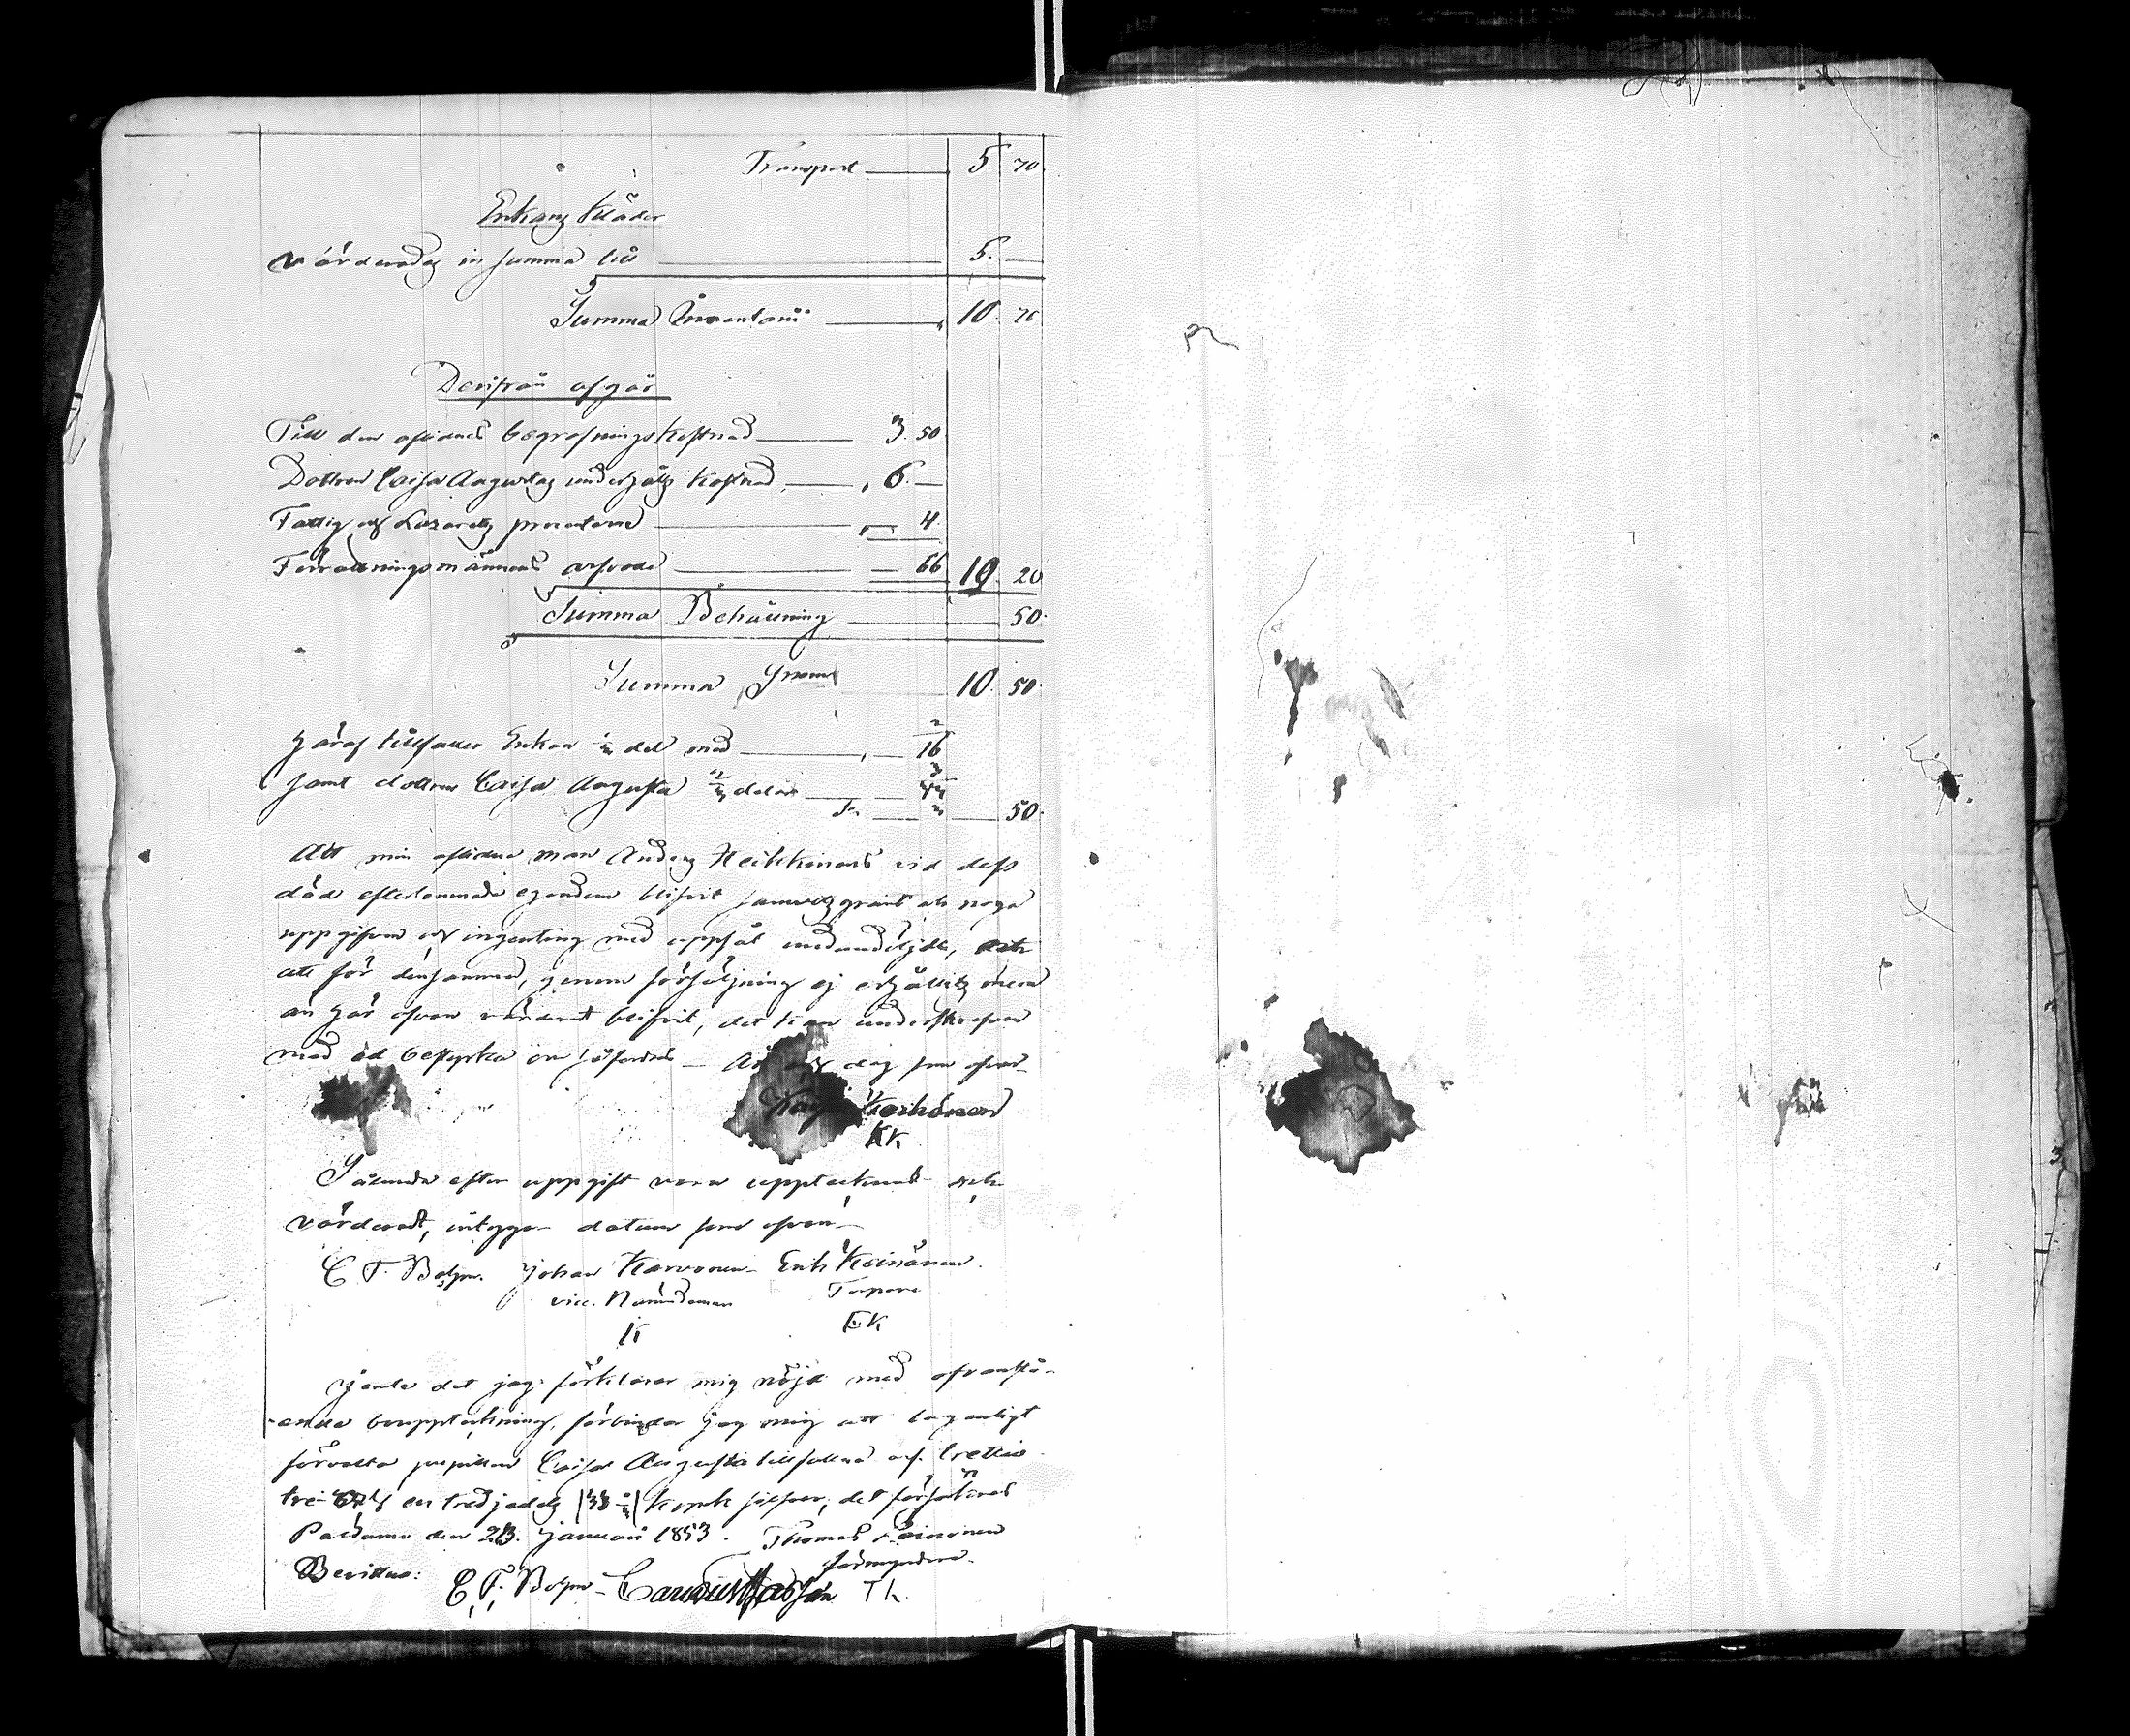 Transport 5. 70.
Enkans Kläder
Värderades in Summa till 5. —
Summa Inventarii 10. 70
Derifrån afgår
Till den aflidnes begrafningskostnad 3. 50
Dottren Caisa Augustas underhålls kostnad 6. —
Fattig och Lazaretts procenterne 4.
Förrättningsmännens arfvode 66 10. 20
Summa Behållning 50.
Summa 10. 50.
Häraf tillfaller Enkan 1/3 del med 16 2/3
samt dottren Caisa Augusta 2/3 delar
50.
Att min aflidne man Anders Heikkinens vid dess
död efterlemnade egendom blifvit samvetsgrant och noga
uppgifven och ingenting med uppsåt undandöljdt, och
att för densamma, genom försäljning ej erhållits mera
än här ofvan värderat blifvit, det kan underskrefven
med ed bestyrka om så fordras — År och dag som ofvan —
Kaisa Keinänen
KK
Sålunda efter uppgift vara upptecknadt och
värderadt, intyga datum som ofvan —
C F. Johan Karvonen Erik Keinänen
vice. Nämndeman Torpare
IK EK
Jemte det jag förklarar mig nöjd med ofvanstå-
-ende bouppteckning, förbinder jag mig att lagenligt
förvalta pupillen Caisa Augusta tillfallna arf trettio
tre och en tredjedels (33 1/3) Kopek silfver, det försäkras
Paldamo den 23. Januari 1853. Thomas Keinonen
förmyndare.
Bevittna: C. F. TK.